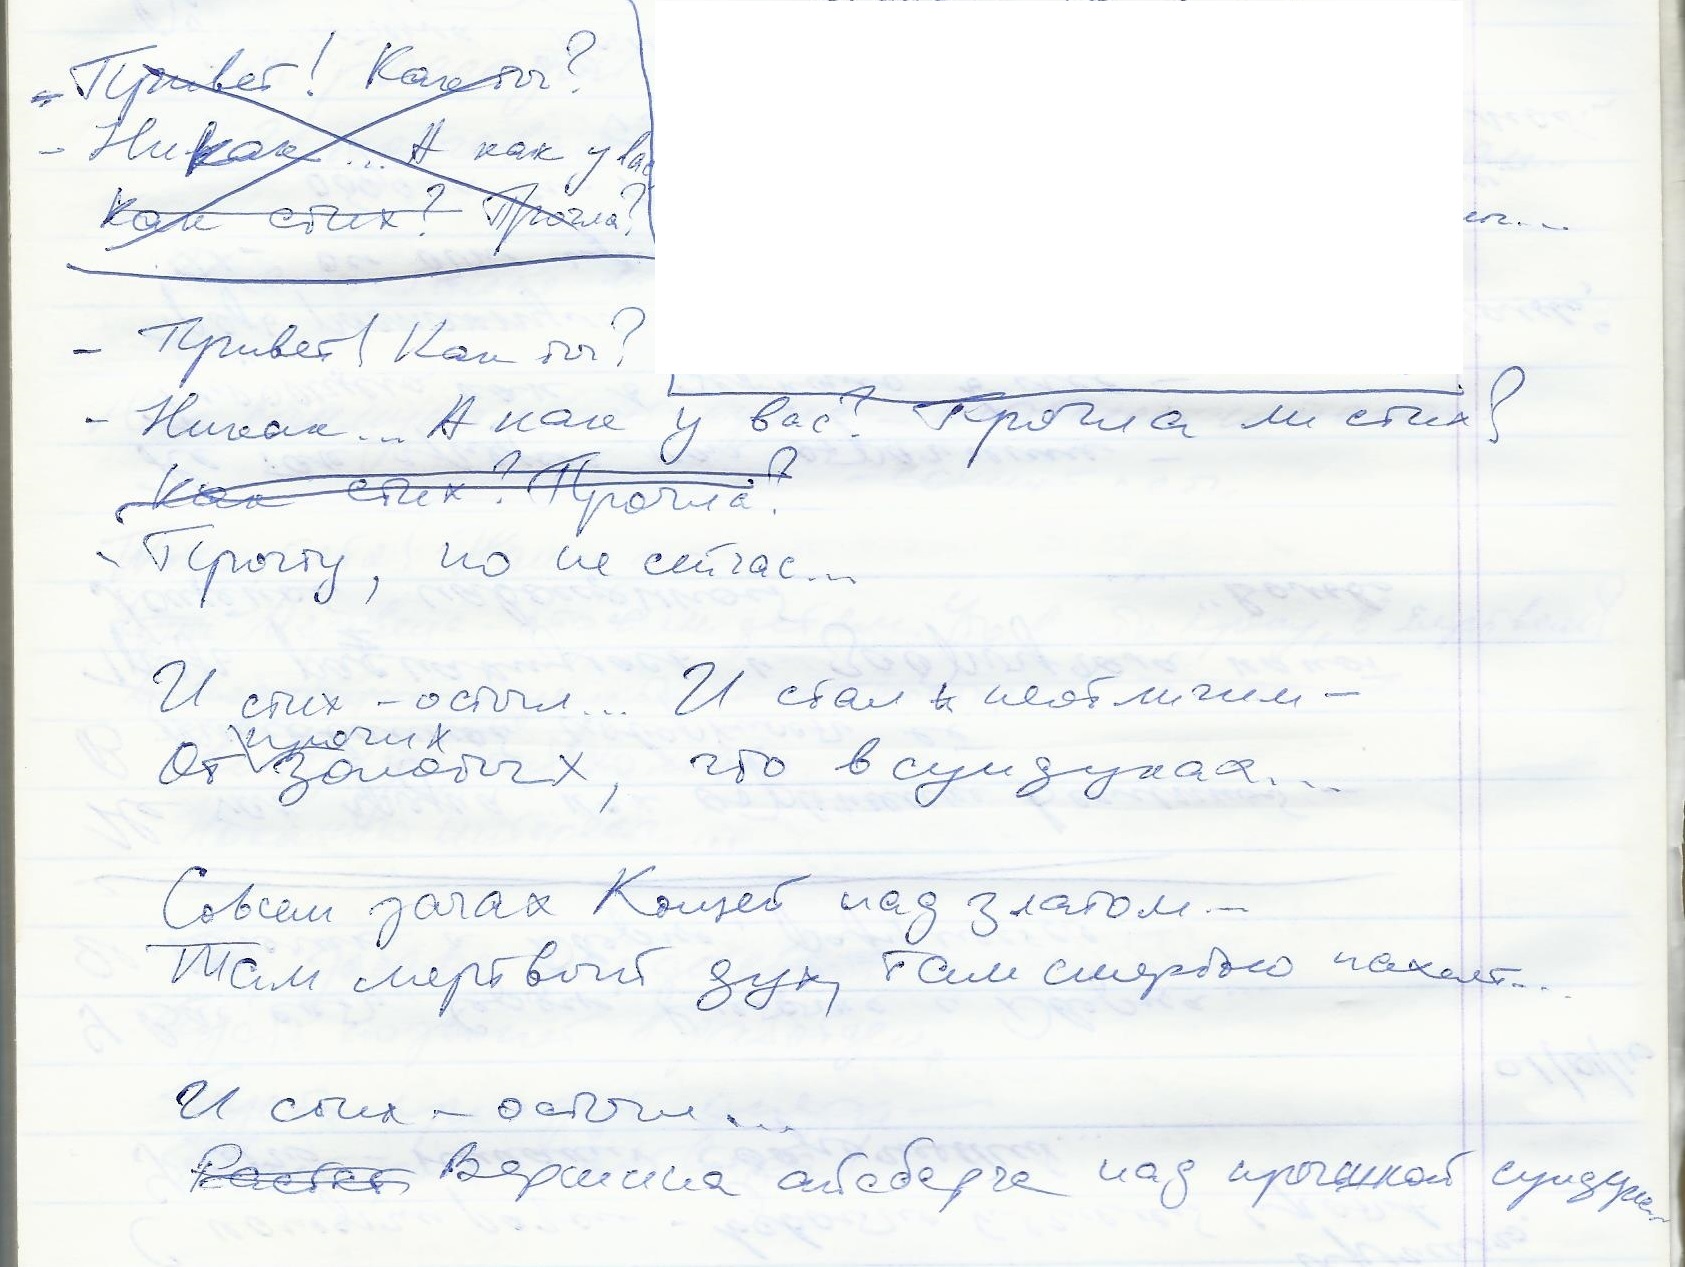 - Привет! Как ты?
- Никак... А как у вас
Как стих? Прочла?
- Привет! Как ты?
- Никак... А как у вас? Прочла ли стих?
Как стих? Прочла?
- Прочту, но не сейчас...
И стих - остыл... И стал неотличим -
прочих
От золотых, что в сундуках...
Совсем зачах Кощей над златом -
Там мертвый дух, там смертью пахнет...
И стих - остыл...
Растает Вершина айсберга над